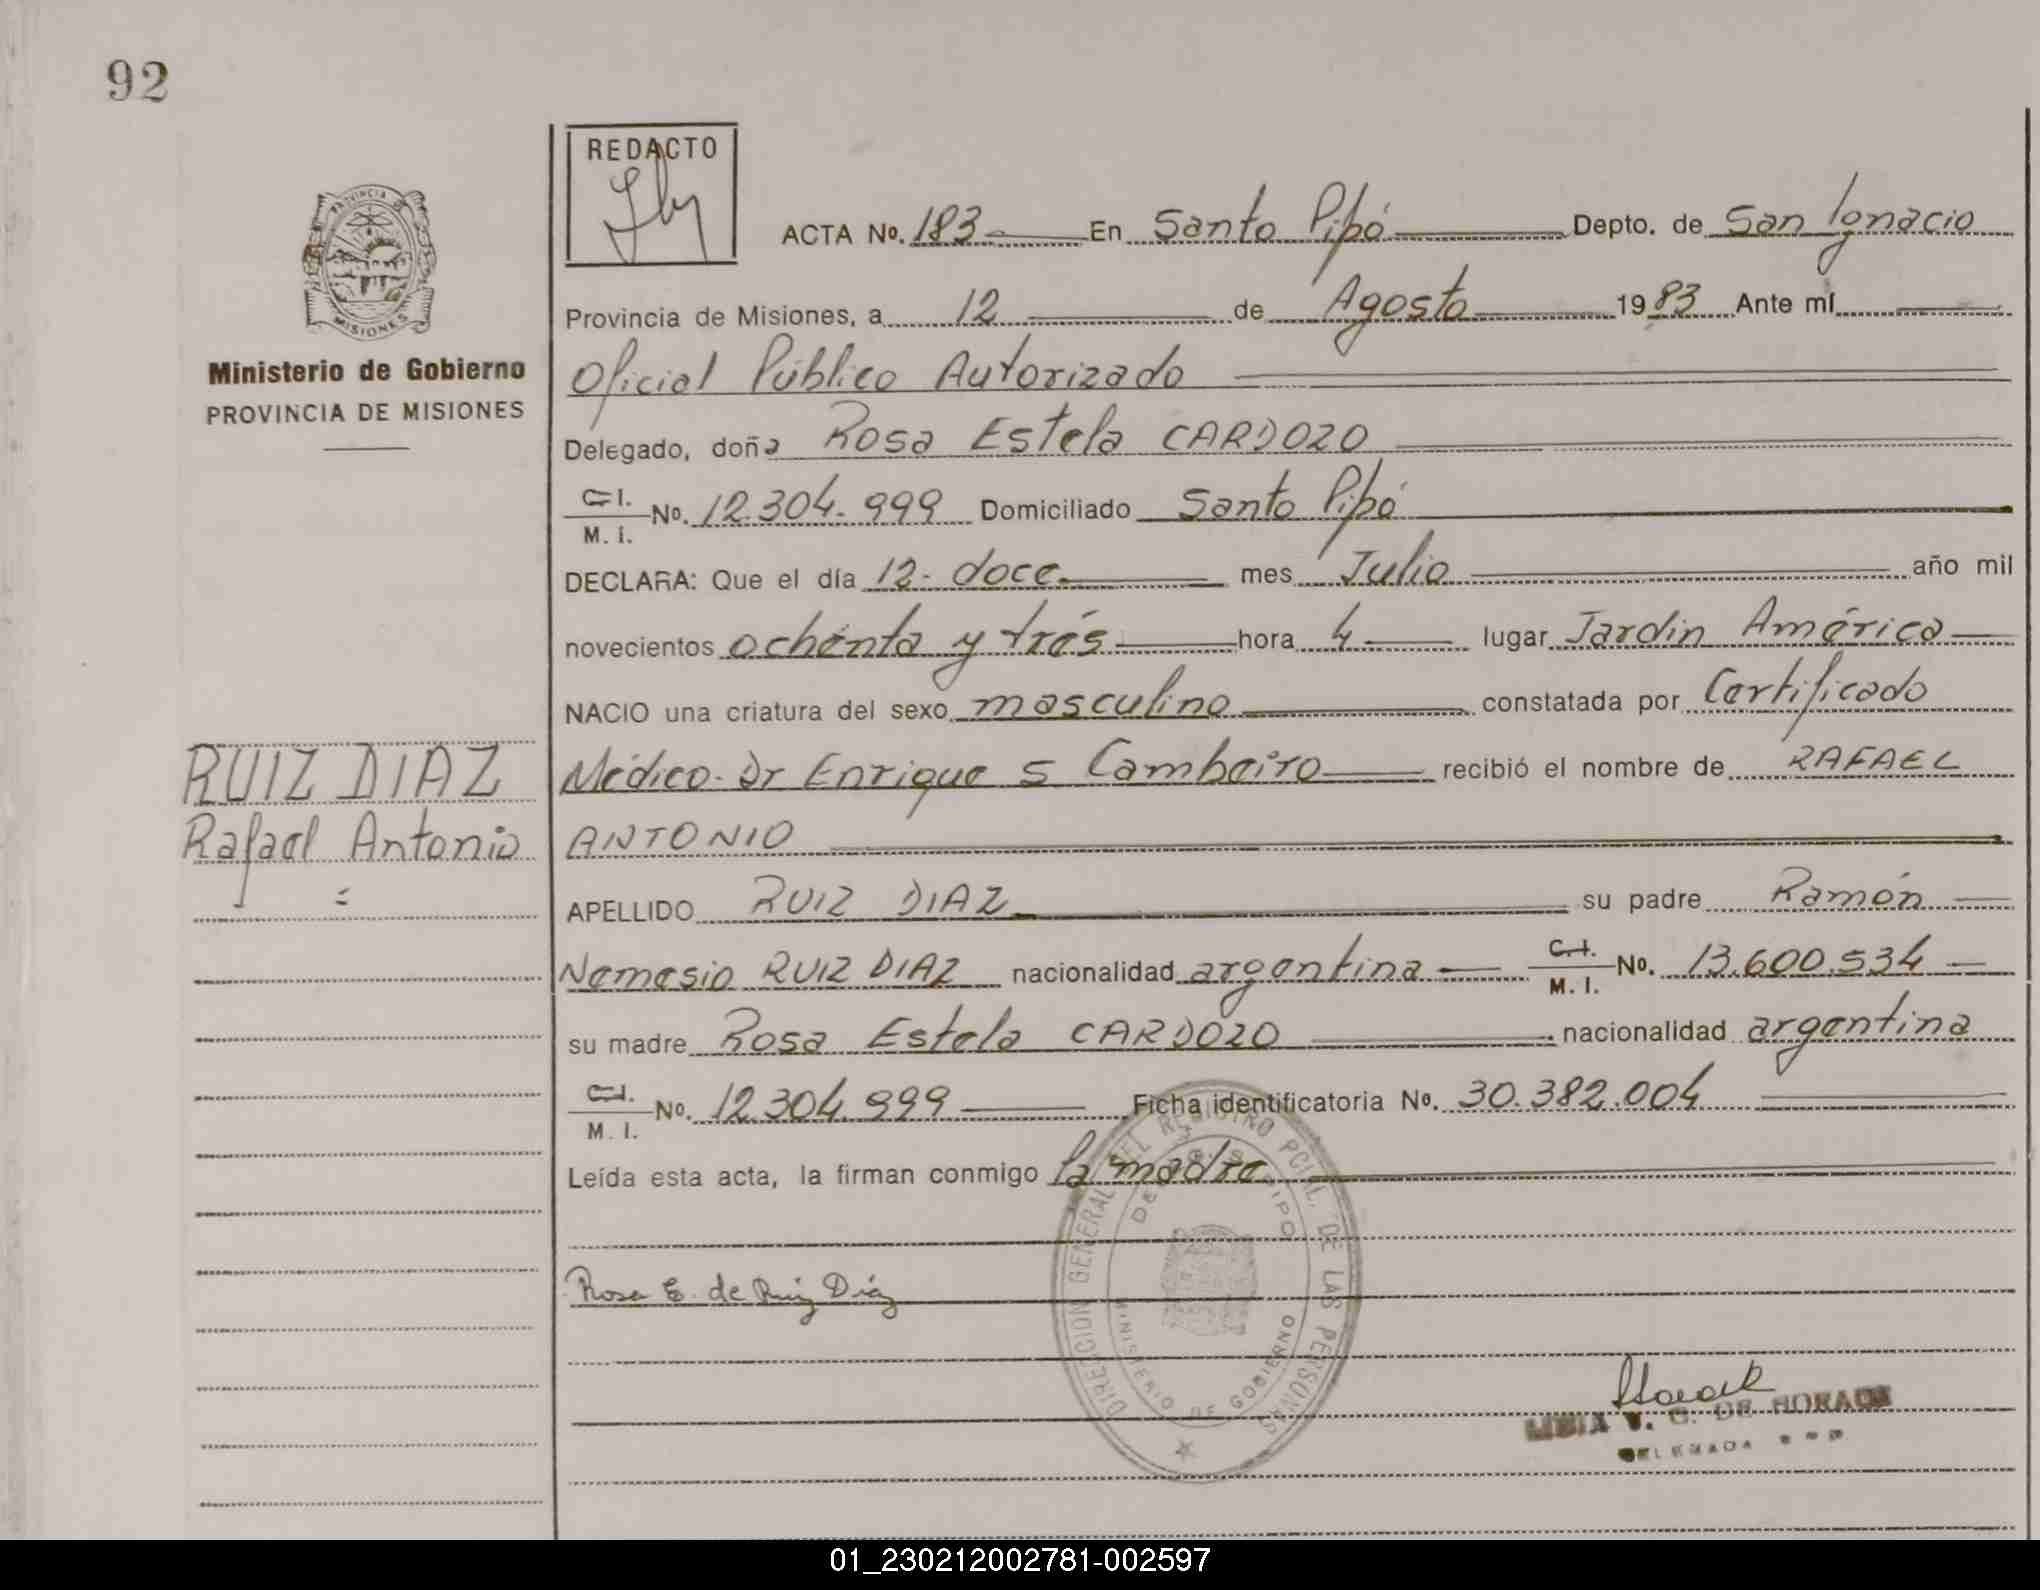 92
REDACTO
ACTA No. 183 En Santo Pipó Depto. de San Ignacio
Provincia de Misiones, a 12 de Agosto 1983 Ante mí
Oficial Público Autorizado
Delegado, doña Rosa Estela CARDOZO
C.I.
M. I. No. 12.304.999 Domiciliado Santo Pipó
DECLARA: Que el día 12- doce mes Julio año mil
novecientos ochenta y trés hora 4 lugar Jardin América
NACIO una criatura del sexo masculino constatada por Certificado
Médico- Dr Enrique S Cambeiro recibió el nombre de RAFAEL
ANTONIO
APELLIDO RUIZ DIAZ su padre Ramón
Nemesio RUIZ DIAZ nacionalidad argentina C.I.
M. I. No. 13.600.534
su madre Rosa Estela CARDOZO nacionalidad argentina
C.I.
M. I. No. 12.304.999 Ficha identificatoria No. 30.382.004
Leída esta acta, la firman conmigo la madre
Rosa E. de Ruiz Díaz
PROVINCIA DE
MISIONES
Ministerio de Gobierno
PROVINCIA DE MISIONES
RUIZ DIAZ
Rafael Antonio
DIRECCION GENERAL DEL REGISTRO PCIAL. DE LAS PERSONAS
MINISTERIO DE GOBIERNO
V. G. DE HORACK
DELEGADA
01_230212002781-002597